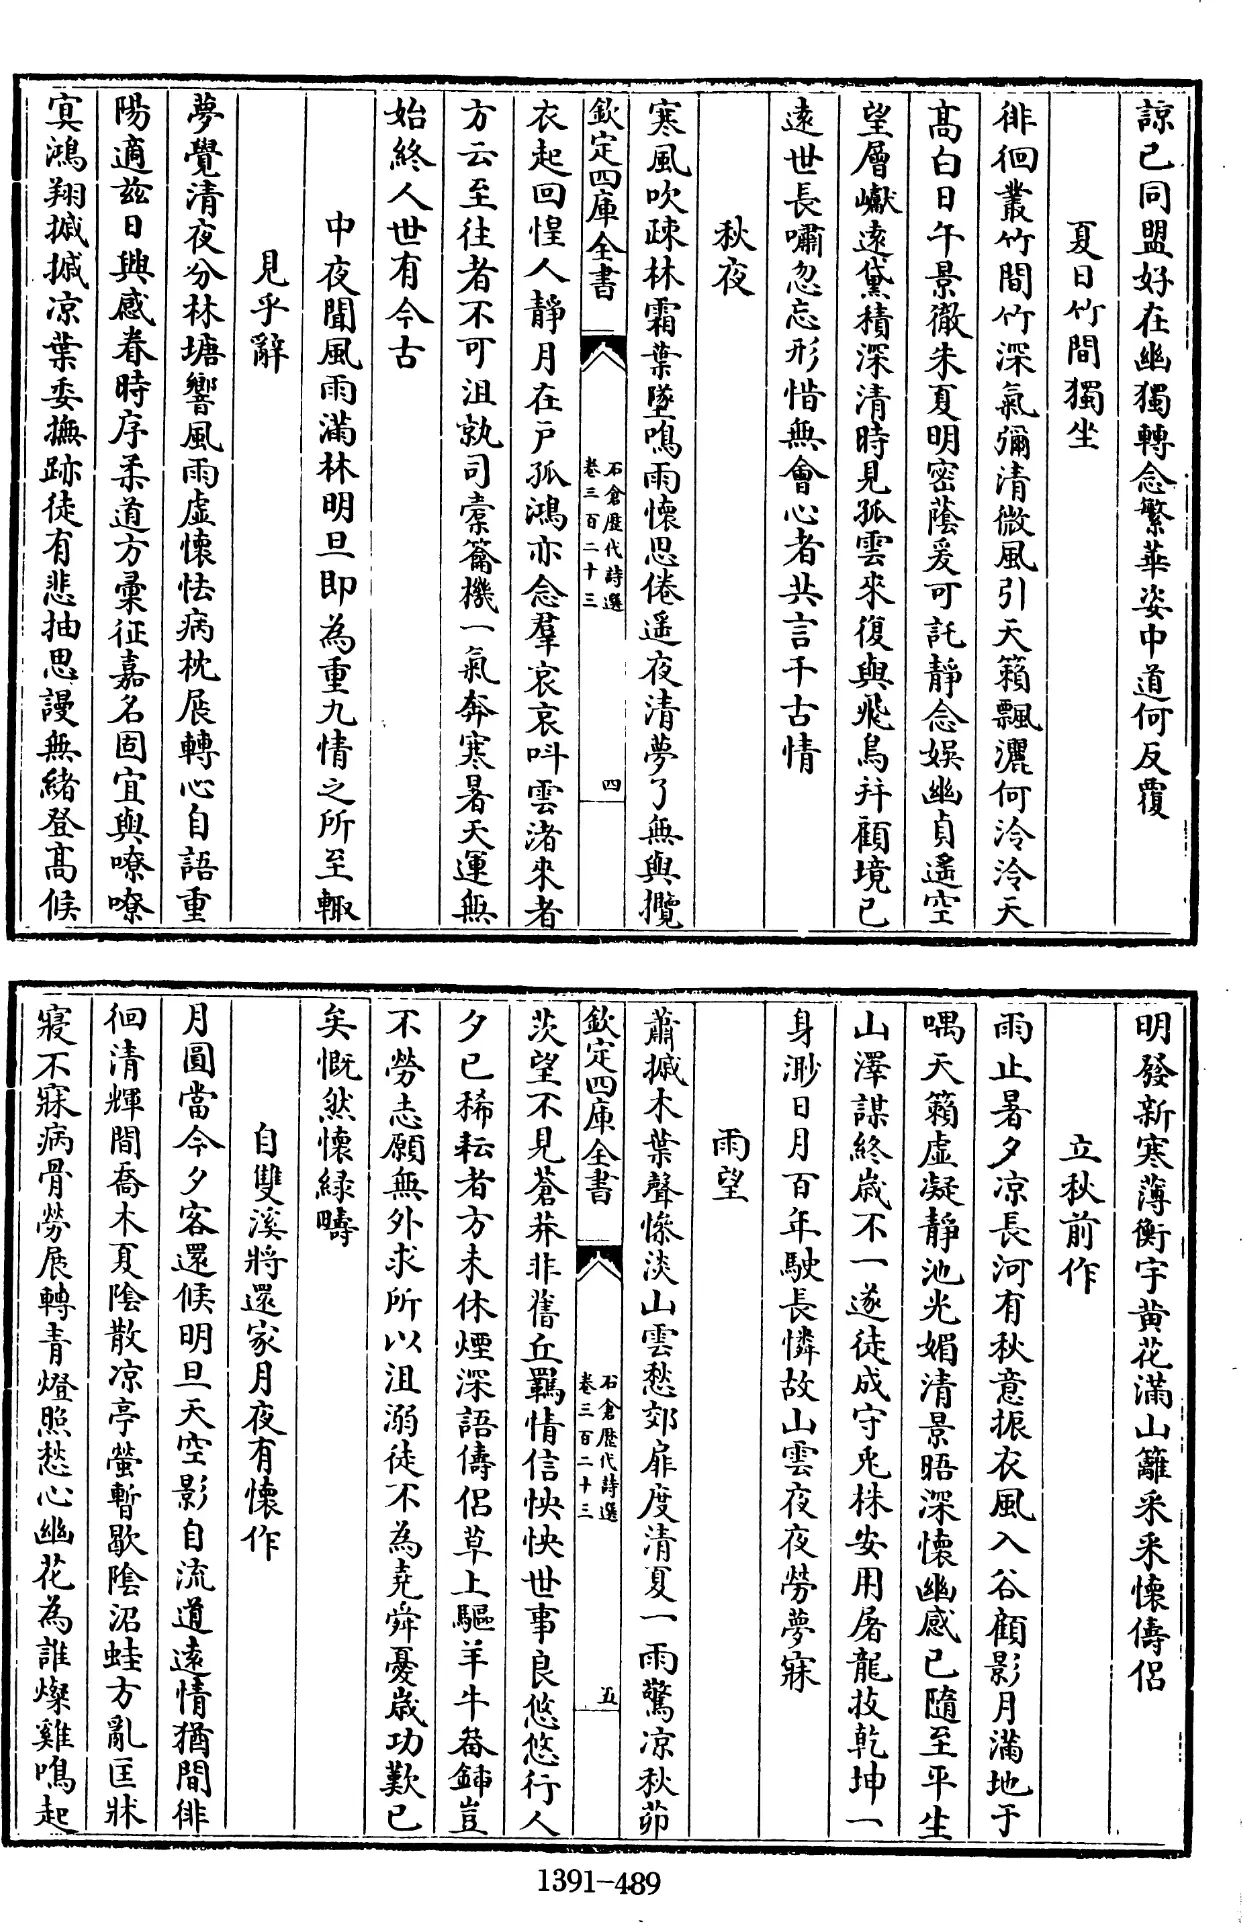 諒已同盟好在幽獨轉念繁華姿中道何反覆
夏日竹間獨坐
徘徊叢竹間竹深氣彌清微風引天籟飄灑何泠泠天
高白日午景徹朱夏明密蔭爰可託靜念娱幽貞遥空
望層巘逺黛積深清時見孤雲來復與飛鳥并顧境已
逺世長嘯忽忘形惜無會心者共言千古情
秋夜
寒風吹疎林霜葉墜鳴雨懷思倦遥夜清夢了無與攬
欽定四庫全書
石倉歷代詩選
卷三百二十三
四
衣起回惶人靜月在户孤鴻亦念羣哀哀呌雲渚來者
方云至往者不可沮孰司橐籥機一氣奔寒暑天運無
始終人世有今古
中夜聞風雨滿林明旦即為重九情之所至輙
見乎辭
夢覺清夜分林塘響風雨虚懷怯病枕展轉心自語重
陽適兹日興感眷時序柔道方彚征嘉名固宜與嘹嘹
寘鴻翔摵摵凉葉委撫跡徒有悲抽思謾無緒登髙候
明發新寒薄衡宇黄花滿山籬采采懷儔侣
立秋前作
雨止暑夕凉長河有秋意振衣風入谷顧影月滿地于
喁天籟虚凝靜池光媚清景晤深懷幽感已隨至平生
山澤謀終歳不一遂徒成守兎株安用屠龍技乾坤一
身渺日月百年駛長憐故山雲夜夜勞夢寐
雨望
蕭摵木葉聲慘淡山雲愁郊扉度清夏一雨驚凉秋茆
欽定四庫全書
石倉歷代詩選
卷三百二十三
五
茨望不見蒼莽非舊丘羈情信怏怏世事良悠悠行人
夕已稀耘者方未休煙深語儔侣草上驅羊牛畚鍤豈
不勞志願無外求所以沮溺徒不為堯舜憂歳功歎已
矣慨然懷緑疇
自雙溪將還家月夜有懷作
月圓當今夕客還候明旦天空影自流道逺情猶間徘
徊清輝間喬木夏陰散凉亭螢暫歇陰沼蛙方亂匡牀
寢不寐病骨勞展轉青燈照愁心幽花為誰燦雞鳴起
1391-489